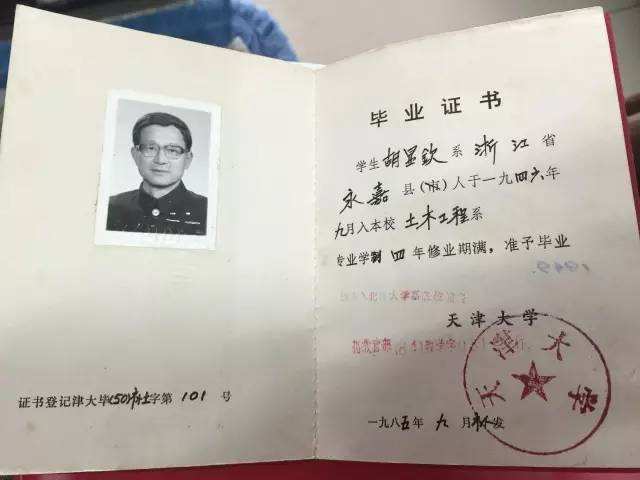 证书登记津大毕(50)补土字第101号
毕业证书
学生胡显钦系浙江省
永嘉县(市)人于一九四六年
九月入本校土木工程系
专业学制四年修业期满，准予毕业
天津大学
天津大学
一九八五年九月补发